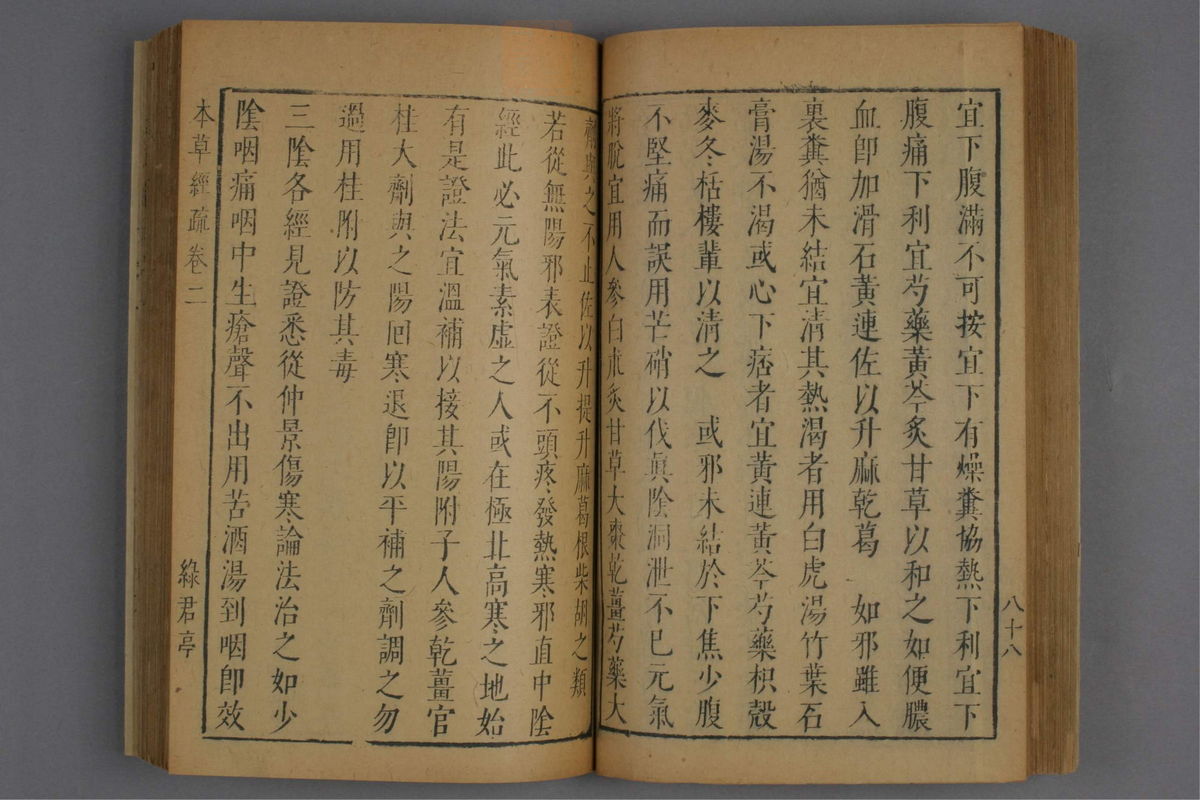 宜下腹滿不可按宜下有燥糞協熱下利宜下
腹痛下利宜芍藥黃芩炙甘草以和之如便膿
血卽加滑石黃連佐以升麻乾葛　如邪雖入
裏糞猶未結宜淸其熱渴者用白虎湯竹葉石
膏湯不渴或心下痞者宜黃連黃芩芍藥枳殼
麥冬栝樓輩以淸之　或邪未結於下焦少腹
不堅痛而誤用芒硝以伐眞陰洞泄不已元氣
將脫宜用人參白朮炙甘草大棗乾薑芍藥大
劑與之不止佐以升提升麻葛根柴胡之類
若從無陽邪表證從不頭疼發熱寒邪直中陰
經此必元氣素虛之人或在極北高寒之地始
有是證法宜溫補以接其陽附子人參乾薑官
桂大劑與之陽囘寒退卽以平補之劑調之勿
過用桂附以防其毒
三陰各經見證悉從仲景傷寒論法治之如少
陰咽痛咽中生瘡聲不出用苦酒湯到咽卽效
八十八
本草經疏 卷二
綠君亭